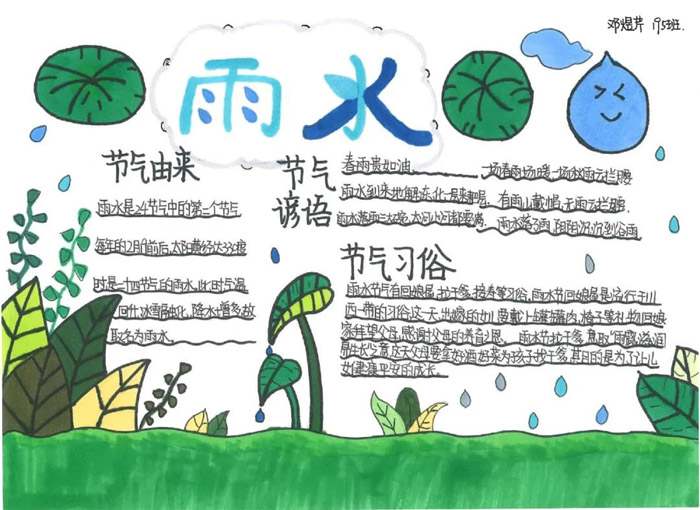 邓煜芹 195班.
雨水
节气由来
雨水是24节气中的第二个节气
每年的2月前后,太阳黄经达330度
时是二十四节气的雨水。此时气温
回升、冰雪融化、降水增多,故
取名为雨水.
节气谚语
春雨贵如油
雨水到来地解冻,化一层来耙一层.
雨水落雨三大碗,大河小河都要满.
一场春雨一场暖,一场秋雨
有雨山戴帽,无雨云拦腰.
雨水落了雨,阴阴沉沉到谷雨
节气习俗
雨水节气有回娘屋,拉干爹,接寿等习俗,雨水节回娘屋是流行于川
西一带的习俗,这一天,出嫁的女儿要带上罐罐肉、椅子等礼物回娘
家拜望父母,感谢父母的养育之恩。 雨水节拉干爹,意取"雨露滋润
易生长"之意,这天父母要 好酒好菜为孩子找干爹,其目的是为了让儿
女健康平安的成长。